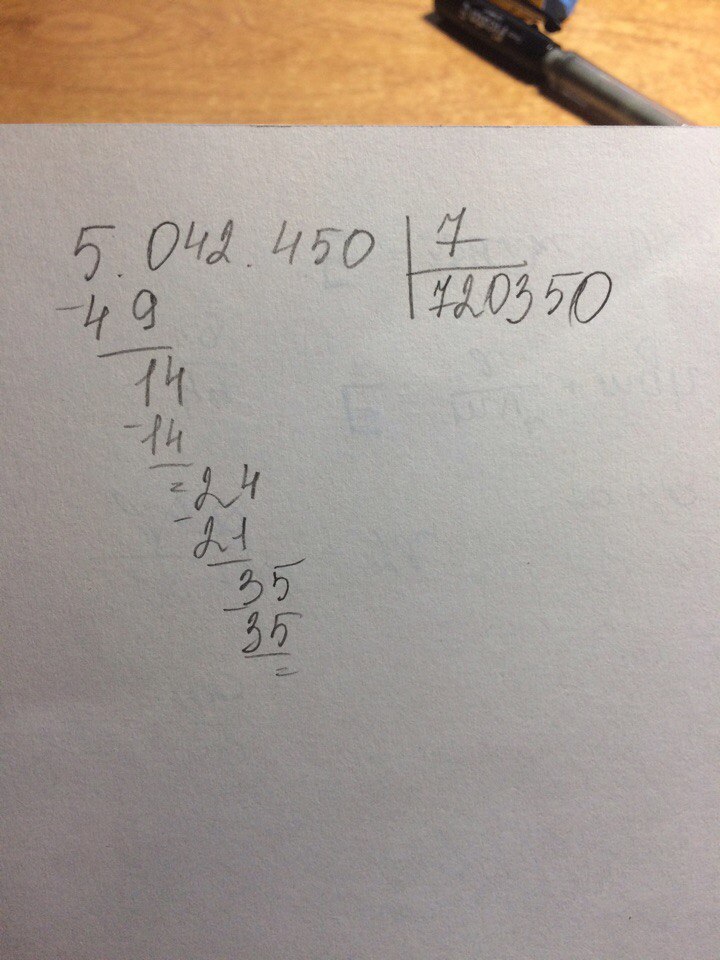 5.042.450 | 7
-49 720350
14
-14
= 24
- 21
35
- 35
=